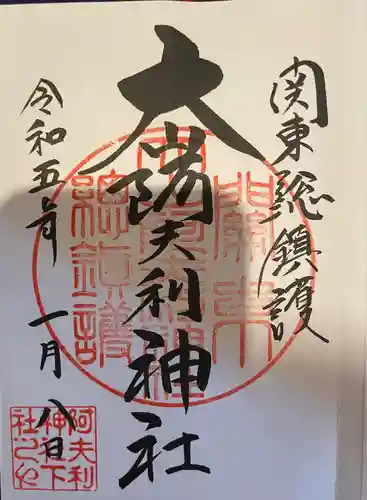 関東総鎮護
大山阿夫利神社
令和五年
一月
八日
關東
總鎮護
阿夫利
神社下
社之印